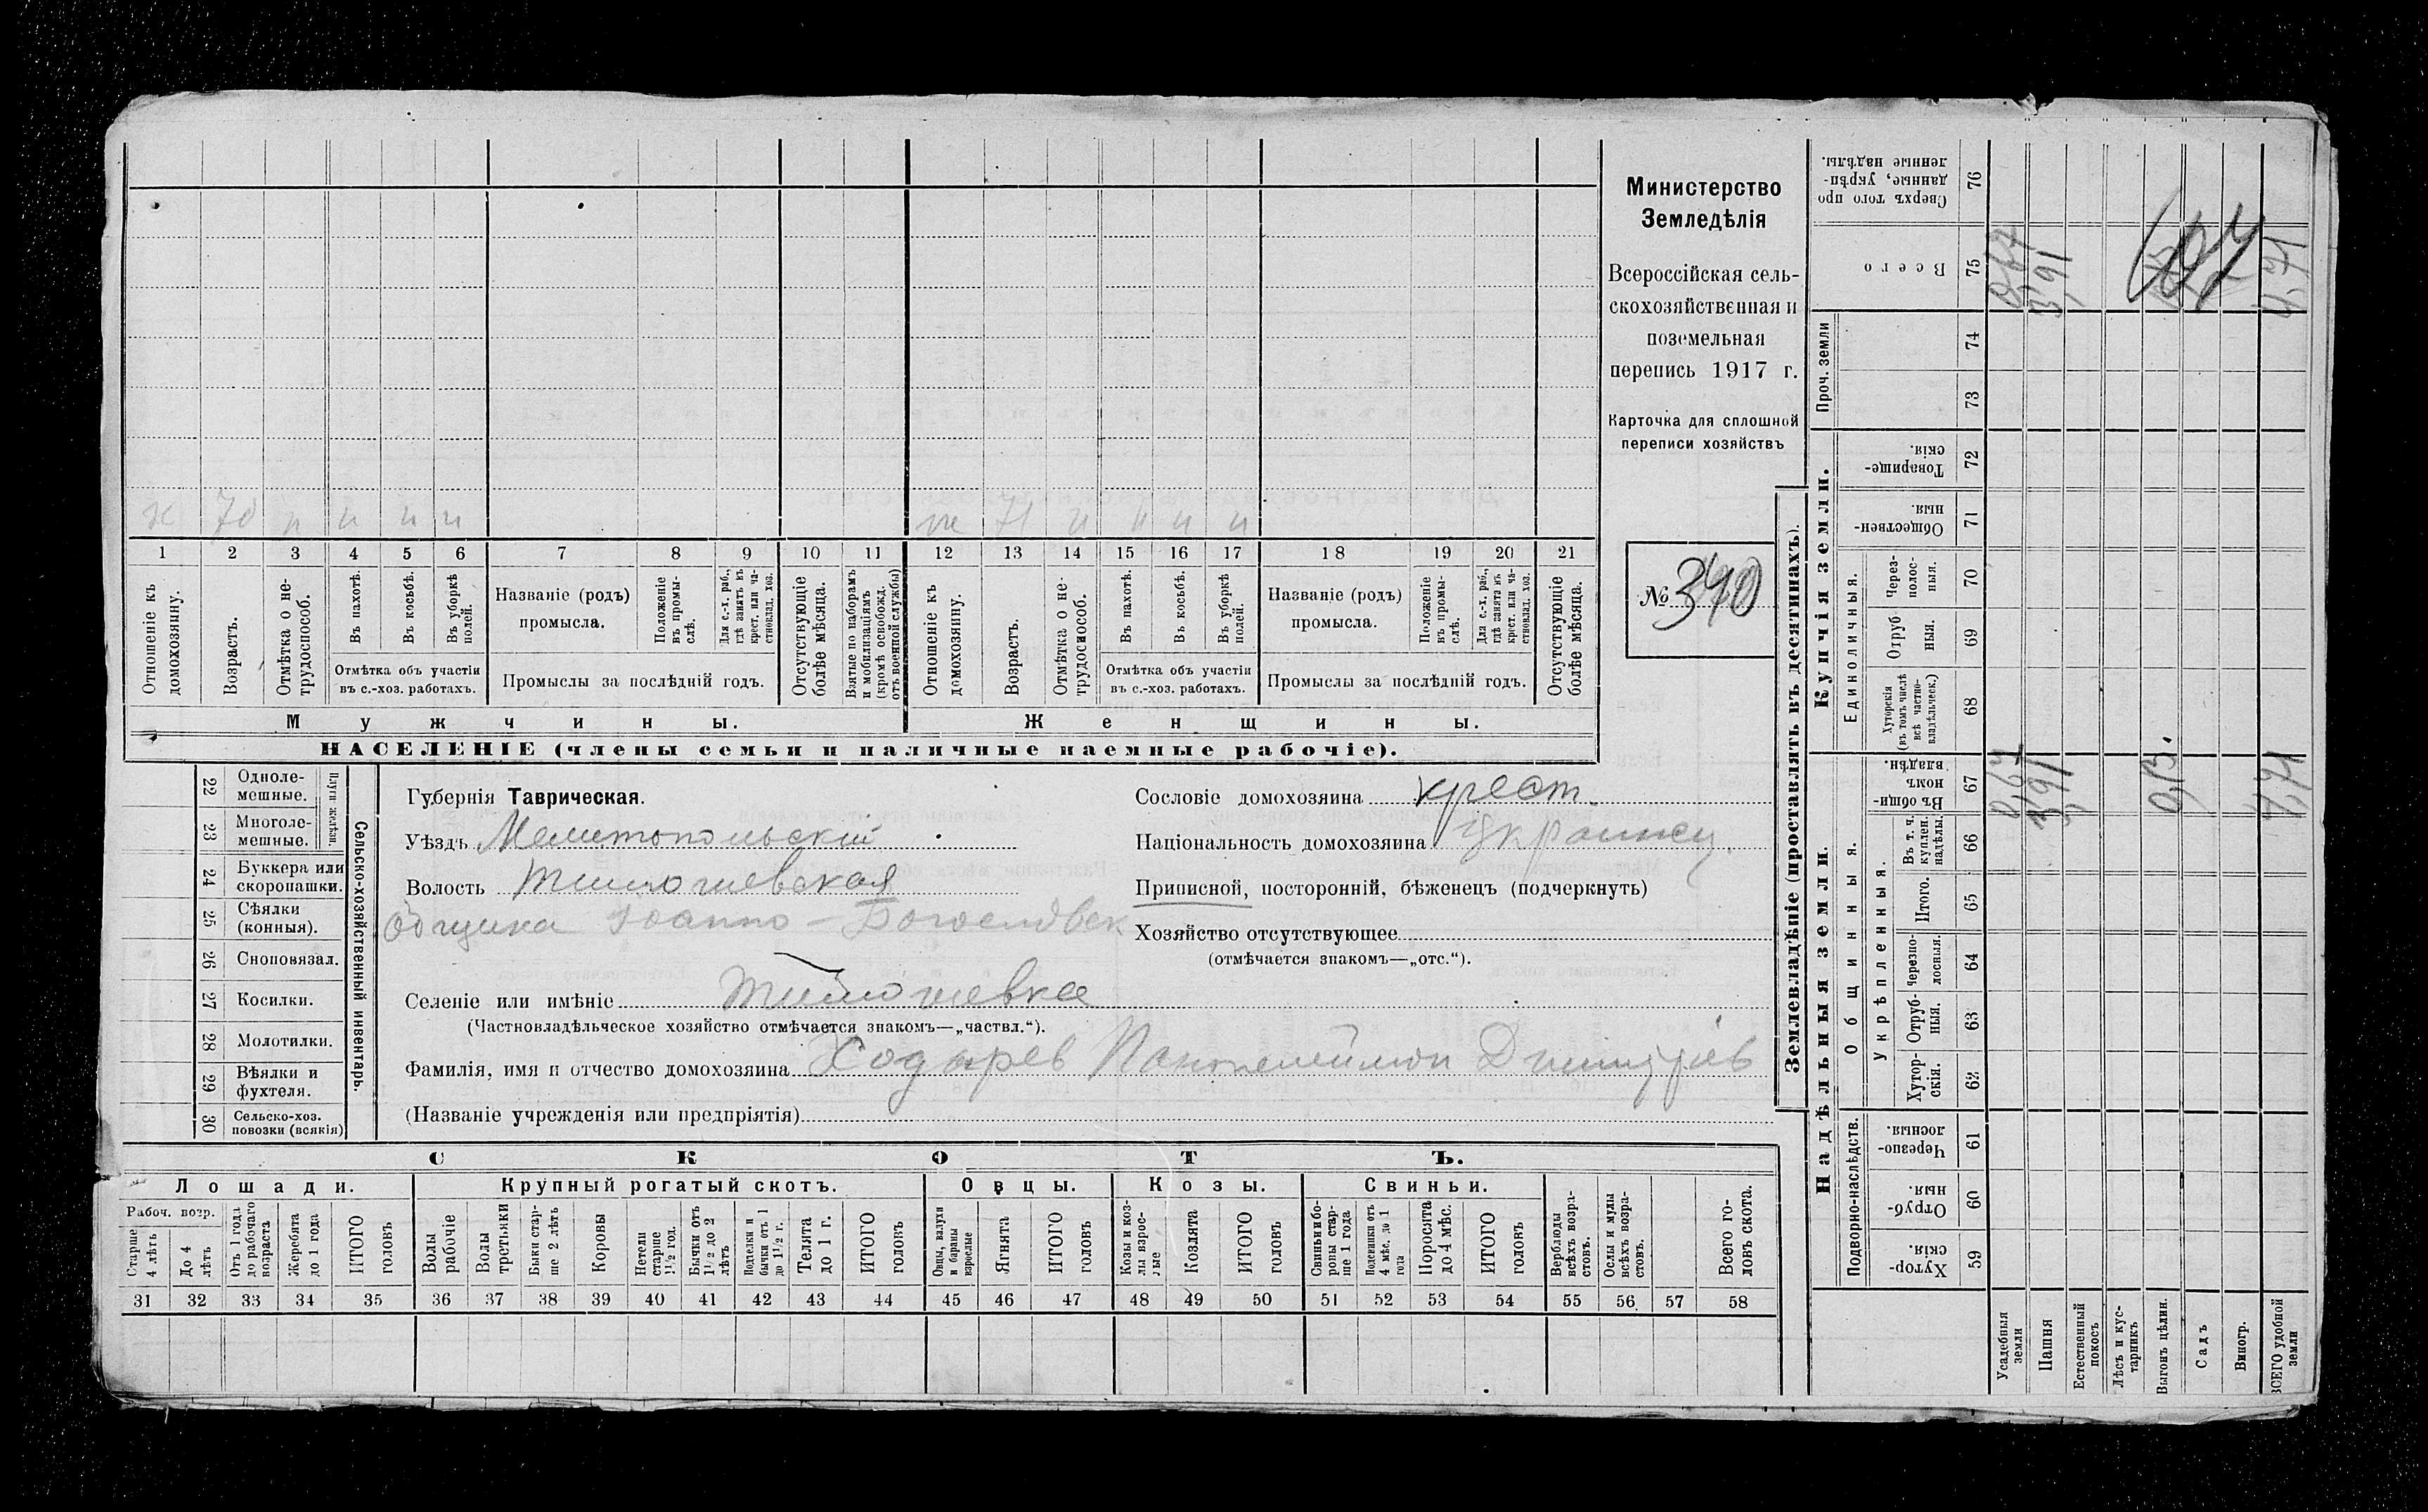 Министерство
Земледѣлія
Всероссійская сель-
скохозяйственная и
поземельная
перепись 1917 г.
Карточка для сплошной
переписи хозяйствъ
№ 340
х 70 н н н н
ж 71 н н н н
1 2 3 4 5 6 7 8 9 10 11 12 13 14 15 16 17 18 19 20 21
Отношеніе къ домохозяину.
Возрастъ.
Отмѣтка о не-трудоспособ.
Въ пахотѣ.
Въ косьбѣ.
Въ уборкѣ полей.
Отмѣтка объ участіи
въ с.-хоз. работахъ.
Названіе (родъ)
промысла.
Положеніе въ промы-слѣ.
Для с.-х. раб., гдѣ занятъ въ крест. или ча-стновлад. хоз.
Промыслы за послѣдній годъ.
Отсутствующіе болѣе мѣсяца.
Взятые по наборамъ и мобилизаціямъ (кромѣ освобожд. отъ военной службы)
Отношеніе къ домохозяину.
Возрастъ.
Отмѣтка о не-трудоспособ.
Въ пахотѣ.
Въ косьбѣ.
Въ уборкѣ полей.
Отмѣтка объ участіи
въ с.-хоз. работахъ.
Названіе (родъ)
промысла.
Положеніе въ промы-слѣ.
Для с.-х. раб., гдѣ занята въ крест. или ча-стновлад. хоз.
Промыслы за послѣдній годъ.
Отсутствующіе болѣе мѣсяца.
Мужчины.
Женщины.
НАСЕЛЕНІЕ (члены семьи и наличные наемные рабочіе).
22 Одноле-мешные.
23 Многоле-мешные.
Плуги желѣзн.
24 Буккера или скоропашки.
25 Сѣялки (конныя).
26 Сноповязал.
27 Косилки.
28 Молотилки.
29 Вѣялки и фухтеля.
30 Сельско-хоз. повозки (всякія)
Сельско-хозяйственный инвентарь.
Губернія Таврическая.
Уѣздъ Мелитопольскій
Волость Тимошевская
Общика Іоанно-Богословск
Селеніе или имѣніе Тимошевка
(Частновладѣльческое хозяйство отмѣчается знакомъ—„частвл.“).
Фамилія, имя и отчество домохозяина Ходырев Пантелеймон Дмитрів
(Названіе учрежденія или предпріятія)
Сословіе домохозяина крест.
Національность домохозяина Украинец.
Приписной, посторонній, бѣженецъ (подчеркнуть)
Хозяйство отсутствующее
(отмѣчается знакомъ—„отс.“).
СКОТЪ.
Лошади. Крупный рогатый скотъ. Овцы. Козы. Свиньи.
Рабоч. возр.
Старше 4 лѣтъ
До 4 лѣтъ
Отъ 1 года до рабочаго возраста
Жеребята до 1 года
ИТОГО головъ
Волы рабочіе
Волы третьяки
Быки стар-ше 2 лѣтъ
Коровы
Нетели старше 1½ год.
Бычки отъ 1½ до 2 лѣтъ
Подтелки и бычки отъ 1 до 1½ г.
Телята до 1 г.
ИТОГО головъ
Овцы, валухи и бараны взрослые
Ягнята
ИТОГО головъ
Козы и коз-лы взрос-лые
Козлята
ИТОГО головъ
Свиньи и бо-ровы стар-ше 1 года
Подсвинки отъ 4 мѣс. до 1 года
Поросята до 4 мѣс.
ИТОГО головъ
Верблюды всѣхъ возра-стовъ.
Ослы и мулы всѣхъ возра-стовъ.
Всего го-ловъ скота.
31 32 33 34 35 36 37 38 39 40 41 42 43 44 45 46 47 48 49 50 51 52 53 54 55 56 57 58
Землевладѣніе (проставлять въ десятинахъ).
Надѣльныя земли.
Купчія земли.
Проч. земли
Подворно-наслѣдств.
Общинныя.
Укрѣпленныя.
Единоличныя.
Хутор-скія. 59
Отруб-ныя. 60
Черезпо-лосныя. 61
Хутор-скія. 62
Отруб-ныя. 63
Черезпо-лосныя. 64
Итого. 65
Въ т. ч. куплен. надѣлы. 66
Въ общи-номъ владѣн. 67
Хуторскія (въ томъ числѣ всѣ частно-владѣльческ.) 68
Отруб-ныя. 69
Через-полос-ныя. 70
Обществен-ныя. 71
Товарище-скія. 72
73
74
Всего 75
Сверхъ того про-данные, укрѣп-ленные надѣлы. 76
Усадебныя земли
Пашня
Естественный покосъ
Лѣсъ и кус-тарникъ
Выгонъ цѣлин.
Садъ
Виногр.
ВСЕГО удобной земли
0,67
3,91
0,13.
4,71
0,67
3,91
4,71